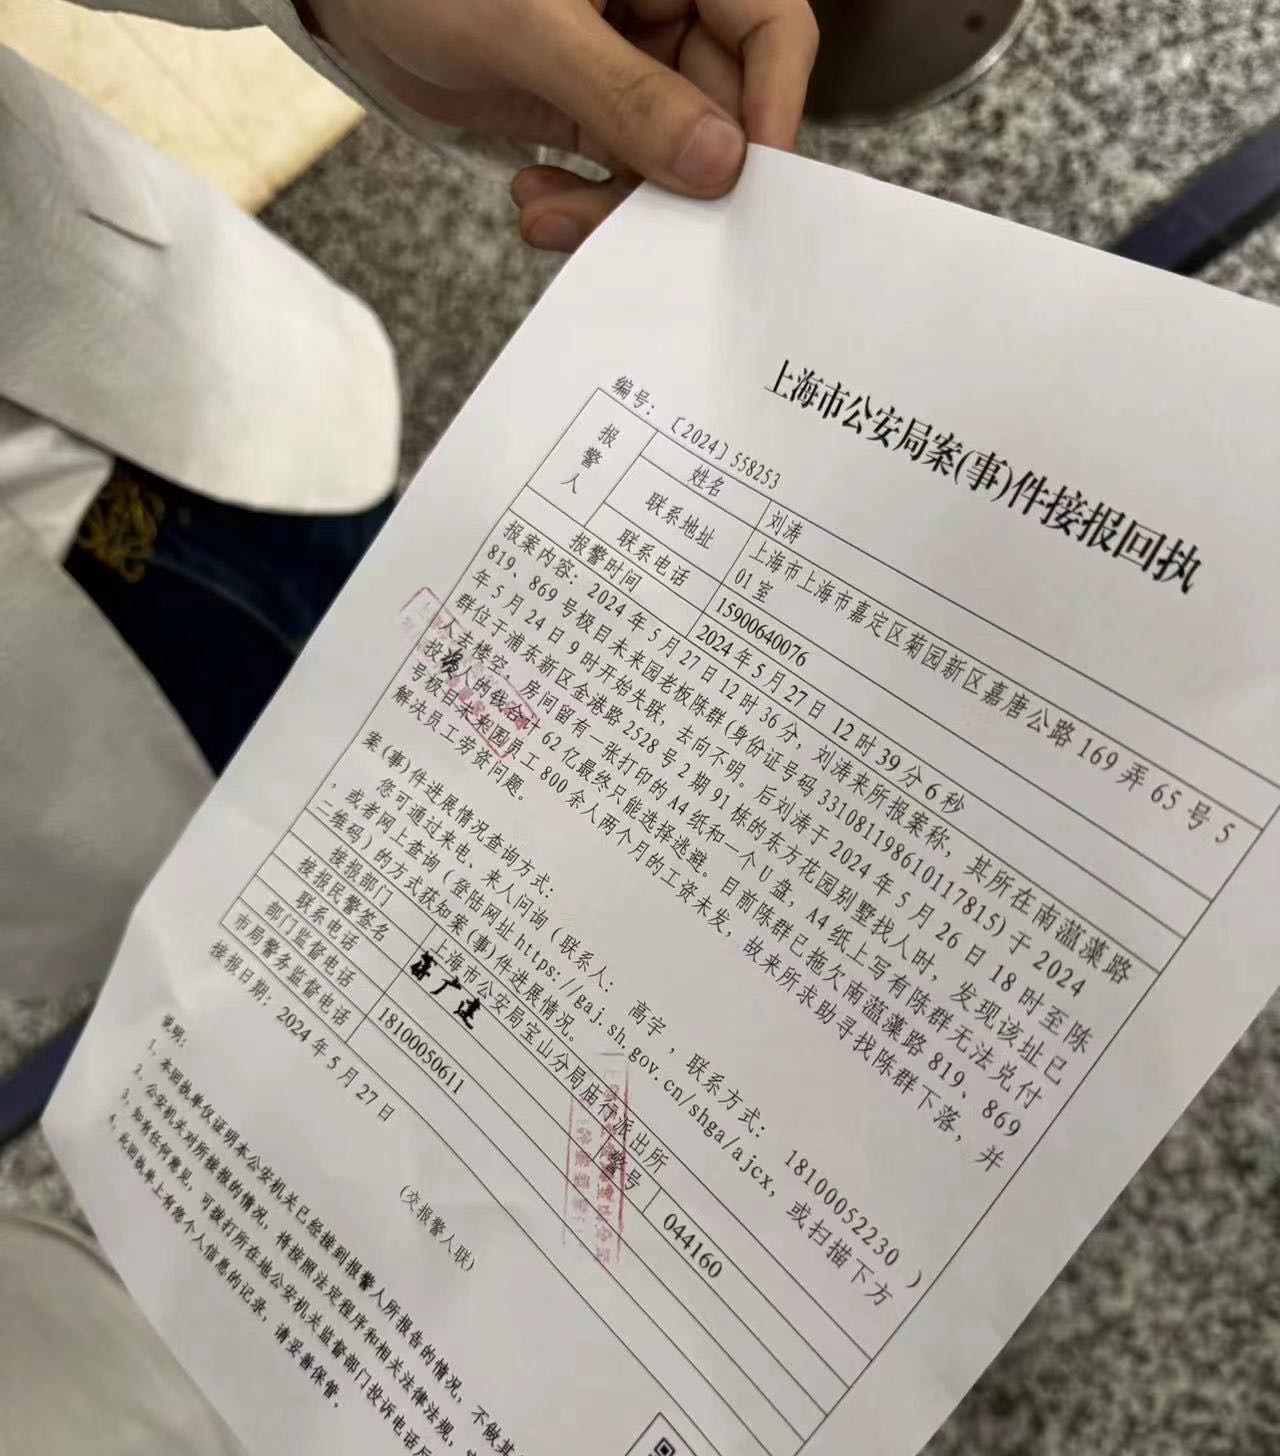 上海市公安局案(事)件接报回执
编号：〔2024〕558253
报警人
姓名
刘涛
联系地址
上海市上海市嘉定区菊园新区嘉唐公路169弄65号5
01室
联系电话
15900640076
报警时间
2024年5月27日12时39分6秒
报案内容：2024年5月27日12时36分，刘涛来所报案称，其所在南蕰藻路
819、869号极目未来园老板陈群(身份证号码331081198610117815)于2024
年5月24日9时开始失联，去向不明。后刘涛于2024年5月26日18时至陈
群位于浦东新区金港路2528号2期91栋的东方花园别墅找人时，发现该址已
人去楼空，房间留有一张打印的A4纸和一个U盘，A4纸上写有陈群无法兑付
投资人的钱合计62亿最终只能选择逃避。目前陈群已拖欠南蕰藻路819、869
号极目未来园员工800余人两个月的工资未发，故来所求助寻找陈群下落，并
解决员工劳资问题。
案(事)件进展情况查询方式：
您可通过来电、来人问询（联系人：高宇，联系方式：18100052230）
，或者网上查询（登陆网址https://gaj.sh.gov.cn/shga/ajcx，或扫描下方
二维码）的方式获知案(事)件进展情况。
接报部门
上海市公安局宝山分局庙行派出所
接报民警签名
广建
警号
044160
联系电话
18100050611
部门监督电话
市局警务监督电话
接报日期：2024年5月27日
(交报警人联)
说明：
1、本回执单仅证明本公安机关已经接到报警人所报告的情况，不做其
2、公安机关对所接报的情况，将按照法定程序和相关法律法规，
3、如有任何意见，可拨打所在地公安机关监督部门投诉电话反
4、此回执单上有您个人信息的记录，请妥善保管。